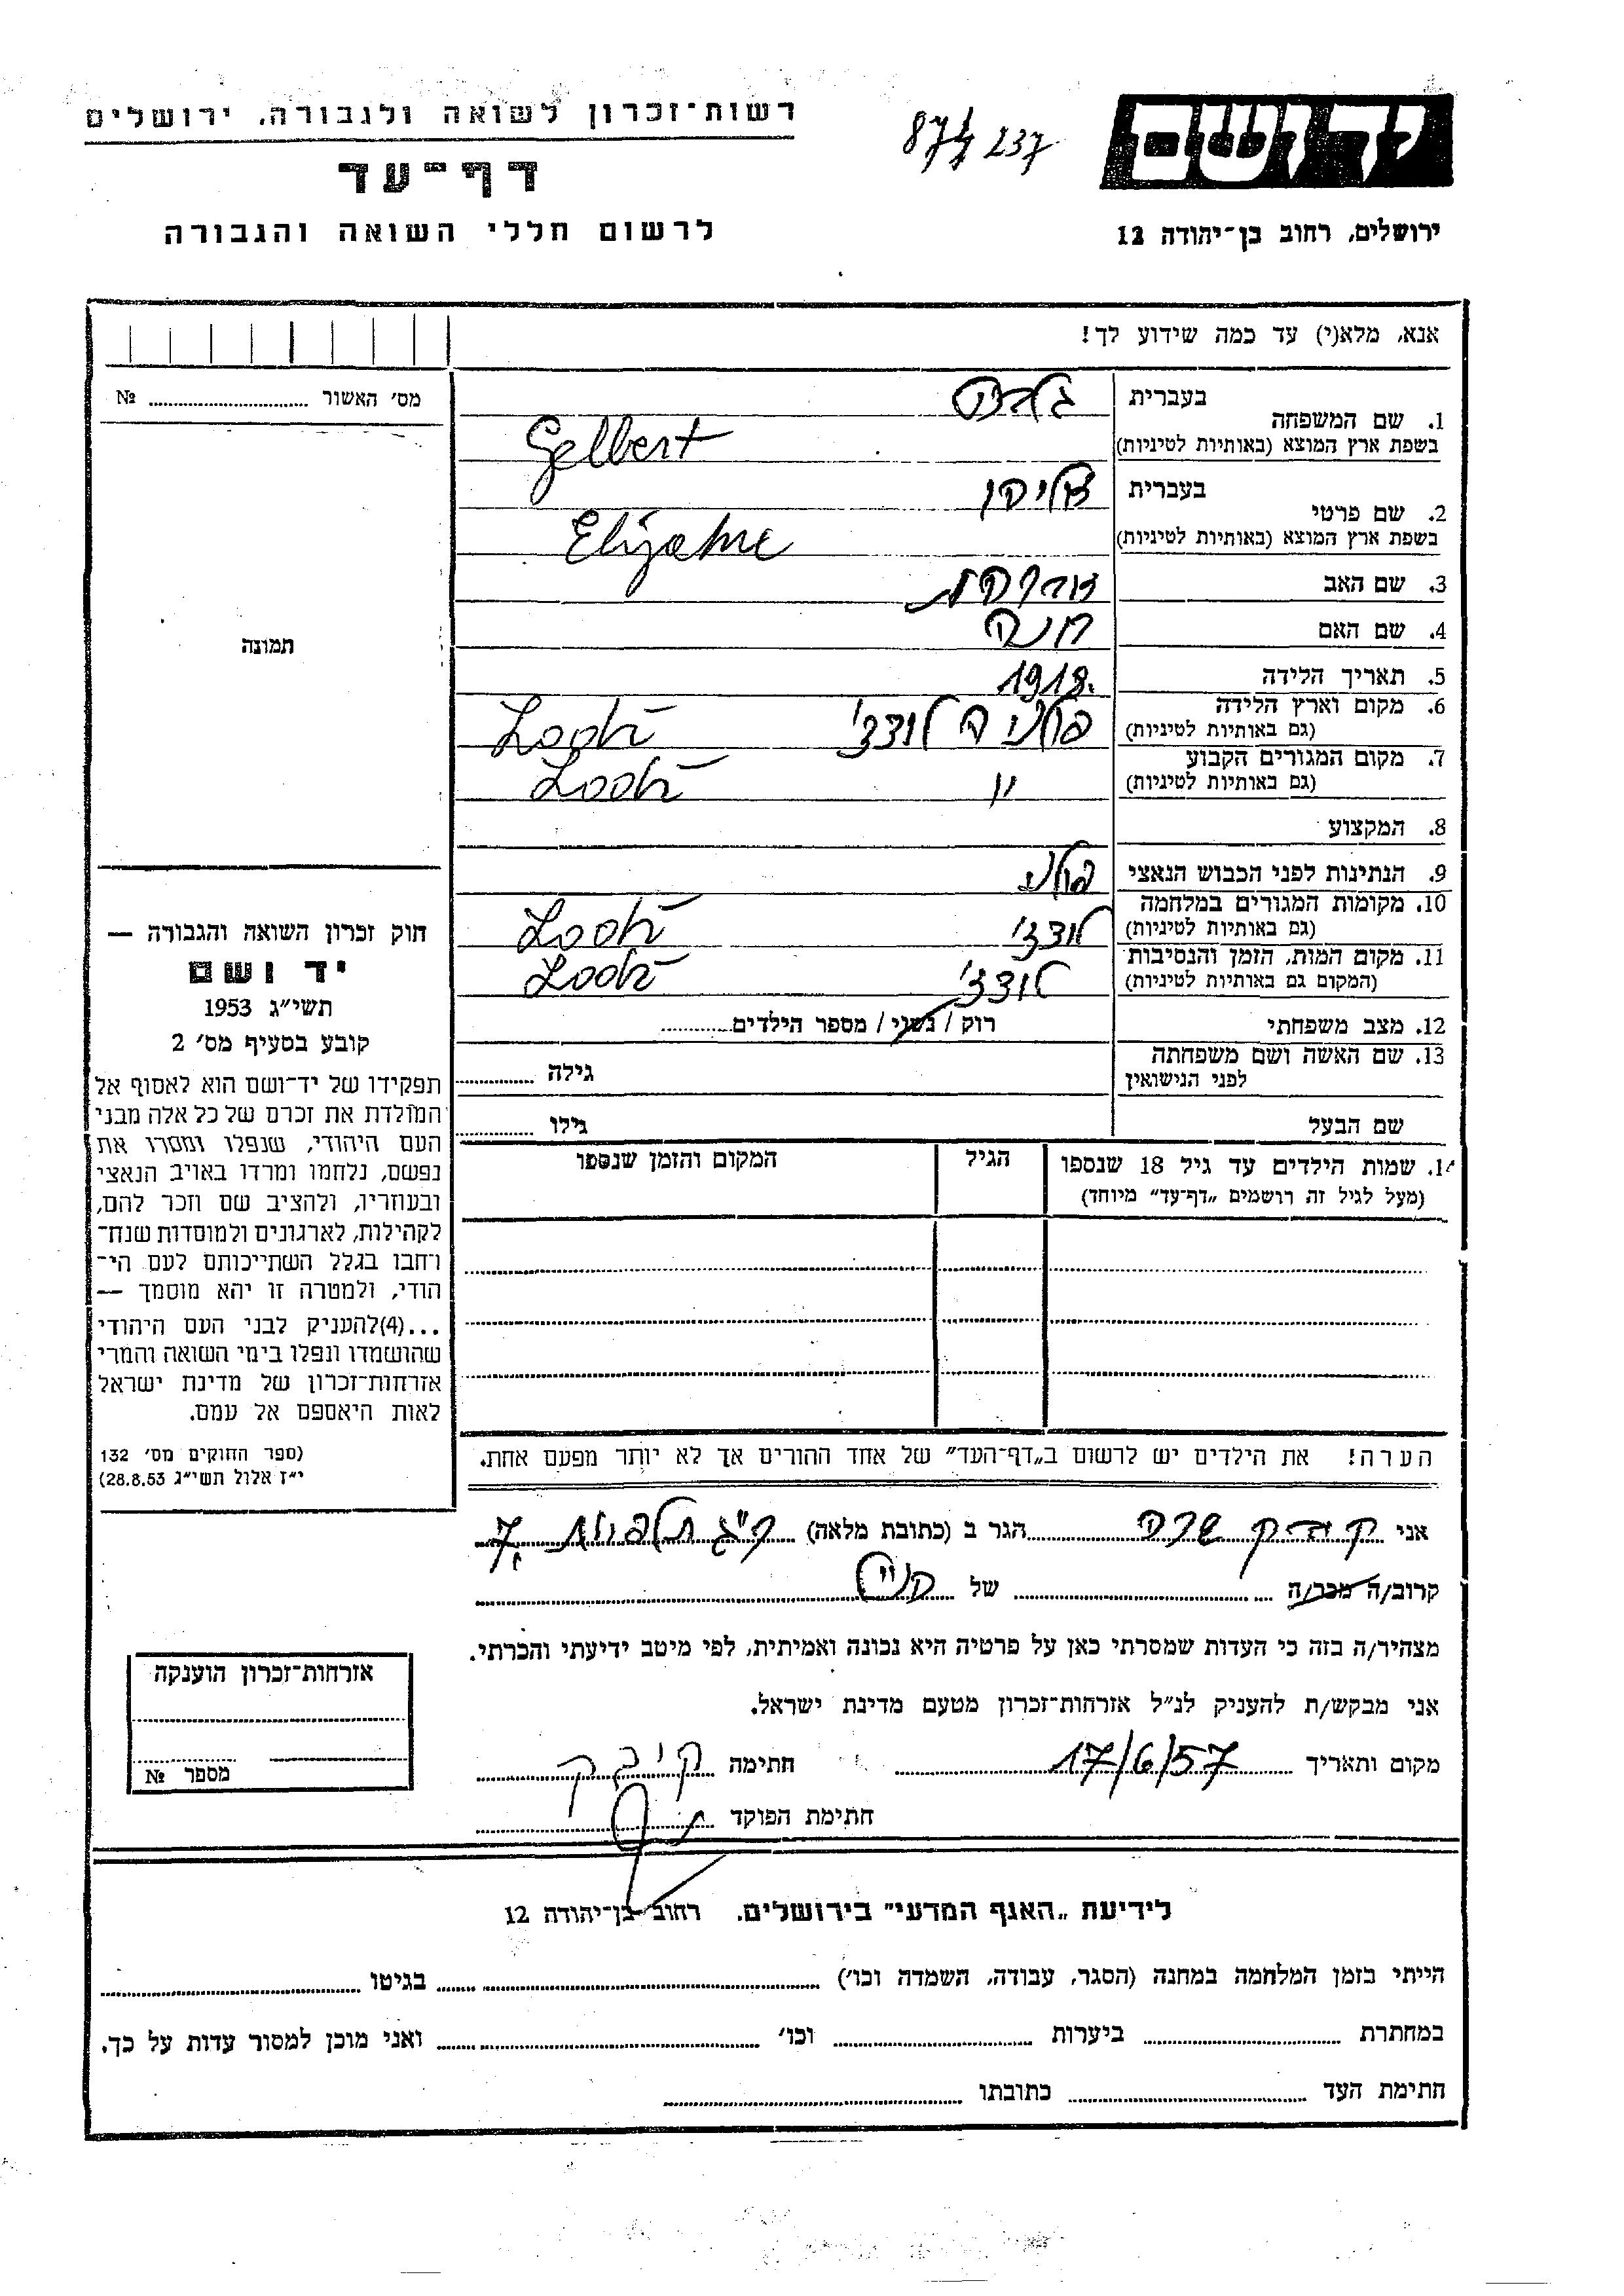 רשות־זכרון לשואה ולגבורה, ירושלים
דף־עד
לרשום חללי השואה והגבורה
87/ 237
יד ושם
ירושלים, רחוב בן־יהודה 12
אנא, מלא(י) עד כמה שידוע לך!
מס׳ האשור № 
1. שם המשפחה
בעברית
בשפת ארץ המוצא (באותיות לטיניות)
Gelbert
2. שם פרטי
בעברית
בשפת ארץ המוצא (באותיות לטיניות)
3. שם האב
4. שם האם חנה
5. תאריך הלידה 1918.
6. מקום וארץ הלידה
(גם באותיות לטיניות)
פולניה לודז׳
7. מקום המגורים הקבוע
(גם באותיות לטיניות)
״
8. המקצוע
9. הנתינות לפני הכבוש הנאצי פולני
10. מקומות המגורים במלחמה
(גם באותיות לטיניות)
לודז׳
11. מקום המות, הזמן והנסיבות
(המקום גם באותיות לטיניות)
לודז׳
12. מצב משפחתי רוק / נשוי / מספר הילדים
13. שם האשה ושם משפחתה
לפני הנישואין
גילה
שם הבעל גילו
14. שמות הילדים עד גיל 18 שנספו
(מעל לגיל זה רושמים „דף־עד״ מיוחד)
הגיל
המקום והזמן שנספו
תמונה
חוק זכרון השואה והגבורה —
יד ושם
תשי״ג 1953
קובע בסעיף מס׳ 2
תפקידו של יד־ושם הוא לאסוף אל
המולדת את זכרם של כל אלה מבני
העם היהודי, שנפלו ומסרו את
נפשם, נלחמו ומרדו באויב הנאצי
ובעוזריו, ולהציב שם וזכר להם,
לקהילות, לארגונים ולמוסדות שנח־
רחבו בגלל השתייכותם לעם הי־
הודי, ולמטרה זו יהא מוסמך —
...(4)להעניק לבני העם היהודי
שהושמדו ונפלו בימי השואה והמרי
אזרחות־זכרון של מדינת ישראל
לאות היאספם אל עמם.
(ספר החוקים מס׳ 132
י״ז אלול תשי״ג 28.8.53)
הערה! את הילדים יש לרשום ב„דף־העד״ של אחד ההורים אך לא יותר מפעם אחת.
אני שרה הגר ב (כתובת מלאה) 7
קרוב/ה מכר/ה של
מצהיר/ה בזה כי העדות שמסרתי כאן על פרטיה היא נכונה ואמיתית, לפי מיטב ידיעתי והכרתי.
אני מבקש/ת להעניק לנ״ל אזרחות־זכרון מטעם מדינת ישראל.
מקום ותאריך 17/6/57 חתימה
חתימת הפוקד
אזרחות־זכרון הוענקה
מספר №
לידיעת „האגף המדעי״ בירושלים. רחוב בן־יהודה 12
הייתי בזמן המלחמה במחנה (הסגר, עבודה, השמדה וכו׳) בגיטו
במחתרת ביערות וכו׳ ואני מוכן למסור עדות על כך.
חתימת העד כתובתו